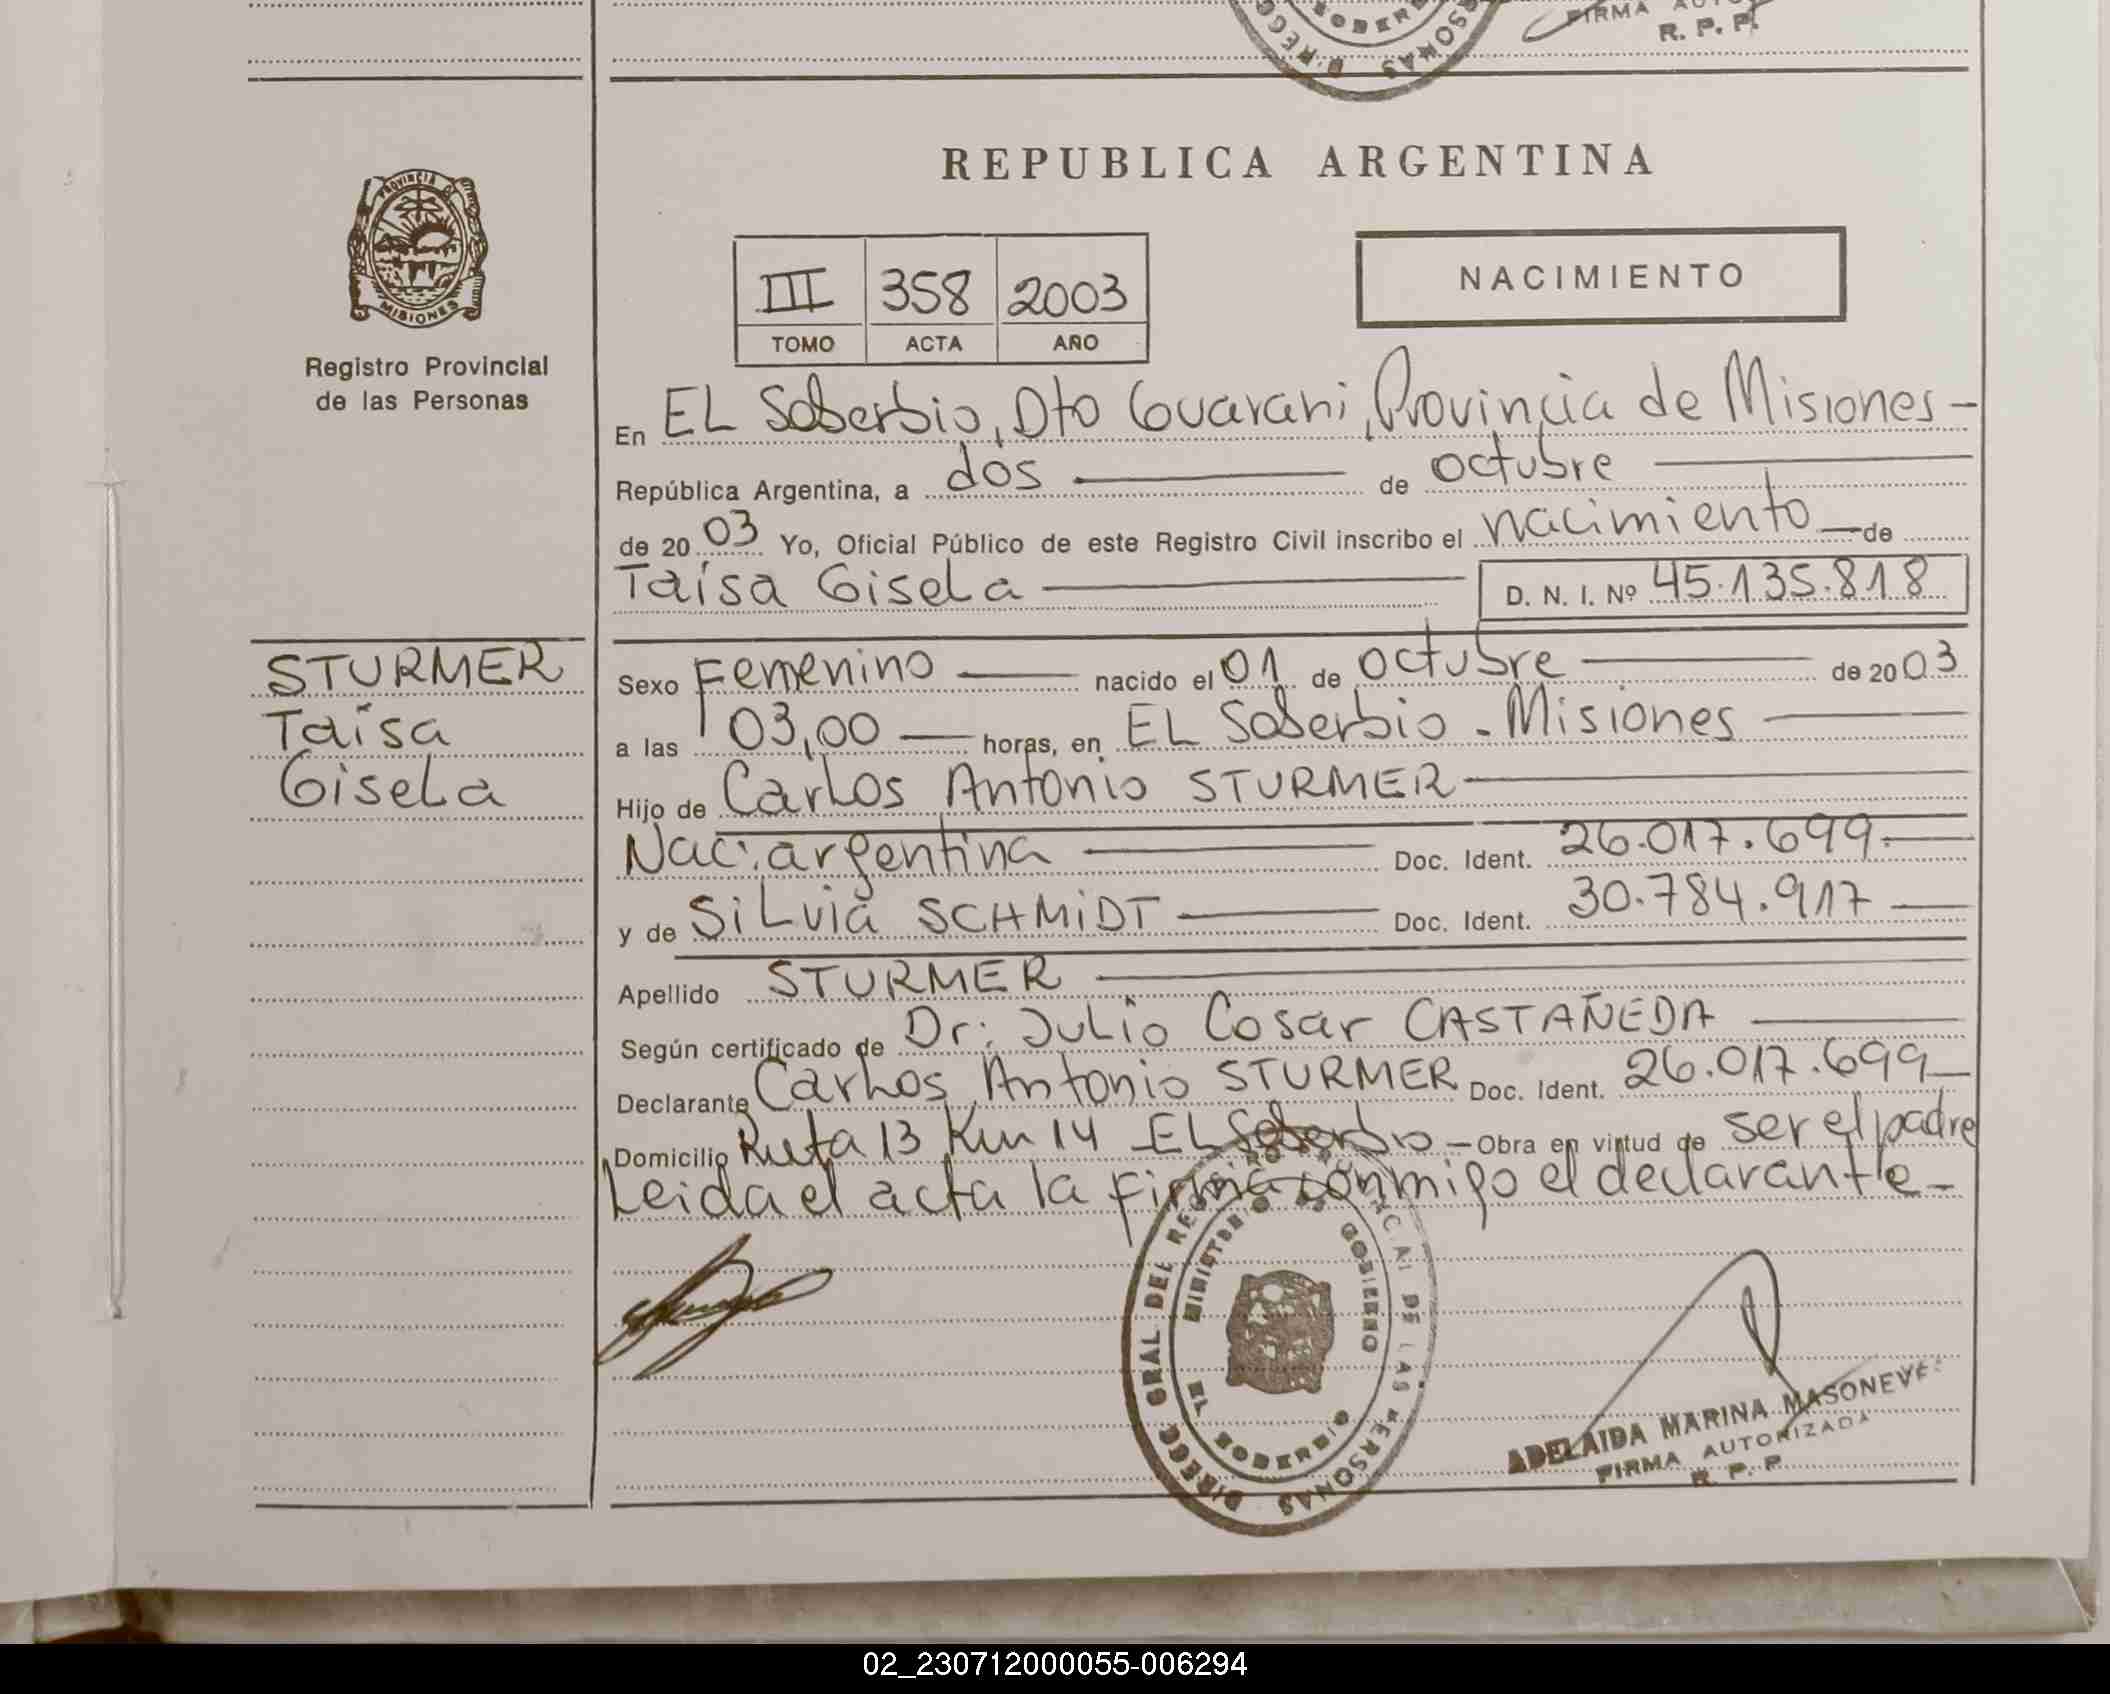 FIRMA
R. P. P.
REPUBLICA ARGENTINA
PROVINCIA DE
MISIONES
Registro Provincial
de las Personas
III 358 2003
TOMO ACTA AÑO
NACIMIENTO
En EL Soberbio, Dto Guarani, Provincia de Misiones -
República Argentina, a dos de octubre
de 2003 Yo, Oficial Público de este Registro Civil inscribo el nacimiento de
Taisa Gisela
D. N. I. Nº 45.135.818
STURMER
Taisa
Gisela
Sexo Femenino nacido el 01 de octubre de 2003
a las 03,00 horas, en EL Soberbio - Misiones
Hijo de Carlos Antonio STURMER
Nac. argentina Doc. Ident. 26.017.699.
y de Silvia SCHMIDT Doc. Ident. 30.784.917
Apellido STURMER
Según certificado de Dr: Julio Cosar CASTAÑEDA
Declarante Carlos Antonio STURMER Doc. Ident. 26.017.699
Domicilio Ruta 13 Km 14 EL Soberbio - Obra en virtud de ser el padre
Leida el acta la firma conmigo el declarante -
DIRECC GRAL DEL REGISTRO PROVINCIAL DE LAS PERSONAS
MINISTERIO DE GOBIERNO
EL SOBERBIO
ADELAIDA MARINA
FIRMA AUTORIZADA
R. P. P.
02_230712000055-006294